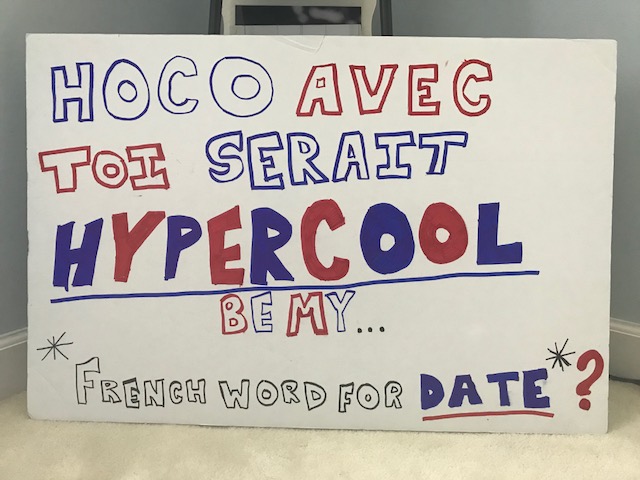 HOCO AVEC
TOI SERAIT
HYPERCOOL
BE MY...
*FRENCH WORD FOR DATE*?